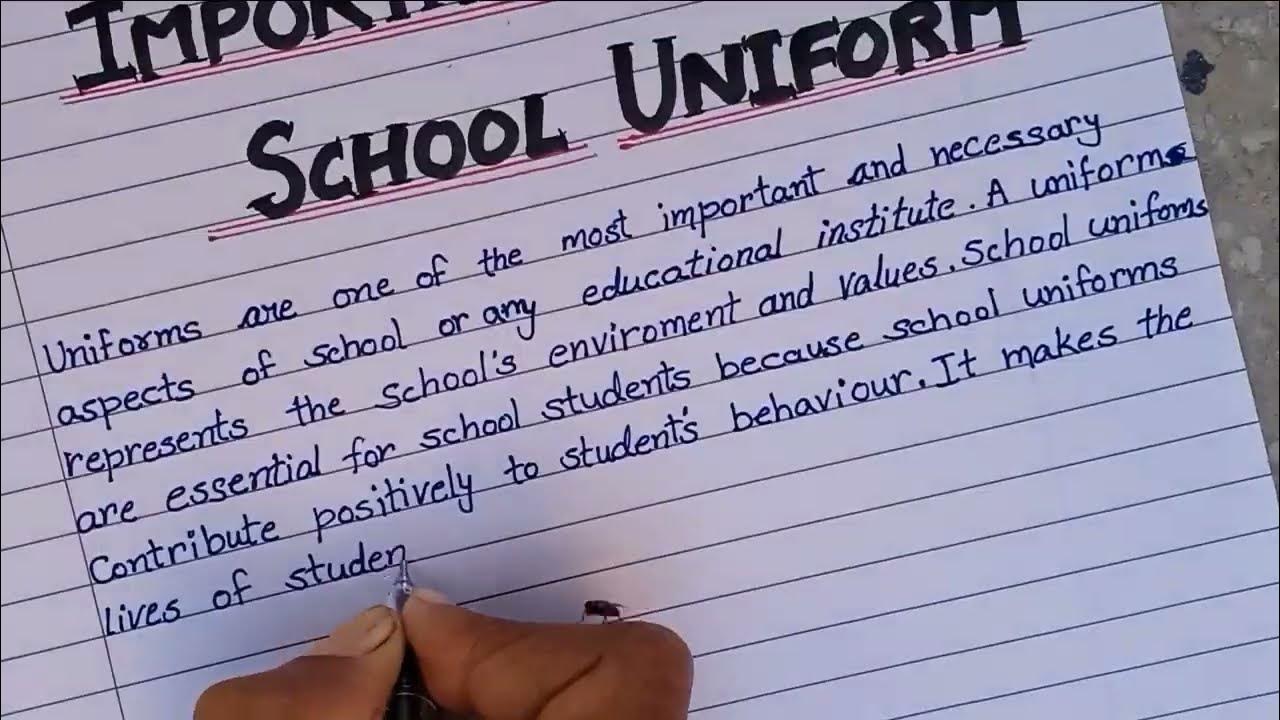 SCHOOL UNIFORM
Uniforms are one of the most important and necessary
aspects of school or any educational institute. A uniforms
represents the school's enviroment and values. School unifoms
are essential for school students because school uniforms
Contribute positively to student's behaviour. It makes the
lives of studen